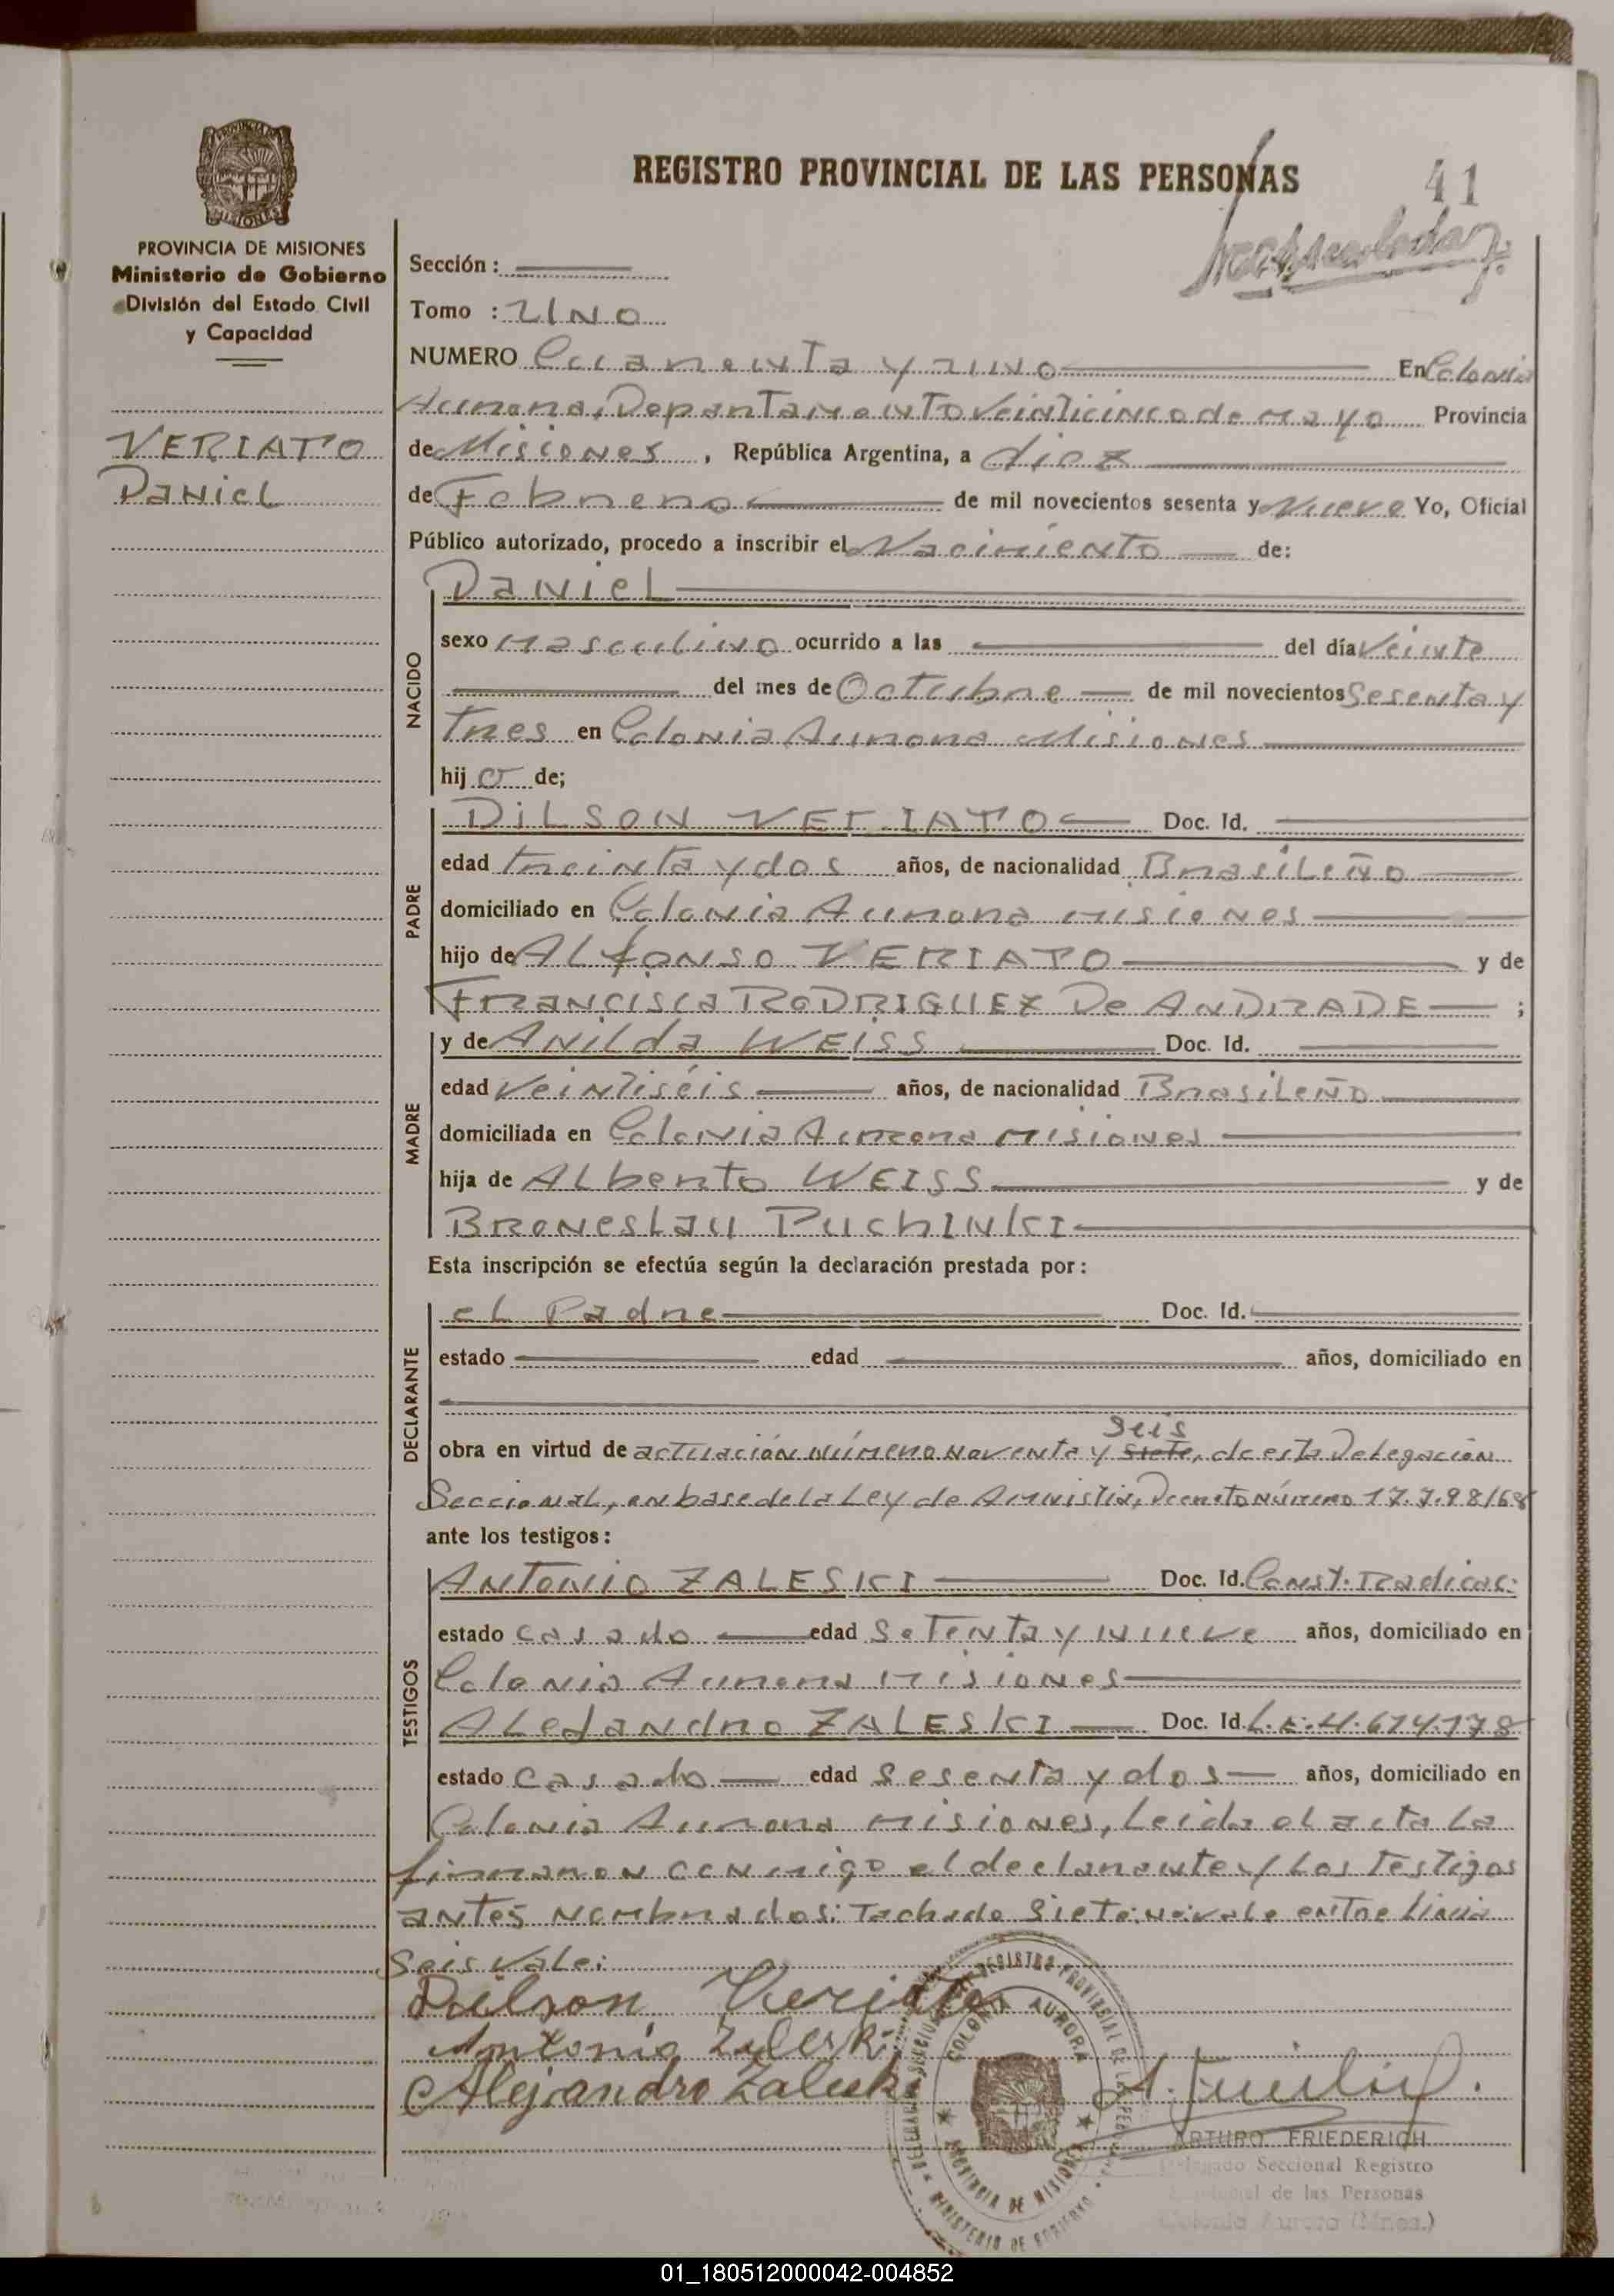 REGISTRO PROVINCIAL DE LAS PERSONAS
41
PROVINCIA DE MISIONES
Ministerio de Gobierno
División del Estado Civil
y Capacidad
VERIATO
Daniel
Sección :
Tomo : UNO
NUMERO Cuarenta y uno En Colonia
Aurora, Departamento Veinticinco de Mayo Provincia
de Misiones , República Argentina, a diez
de Febrero de mil novecientos sesenta y Nueve Yo, Oficial
Público autorizado, procedo a inscribir el Nacimiento de:
NACIDO
Daniel
sexo Masculino ocurrido a las del día Veinte
del mes de Octubre de mil novecientos Sesenta y
Tres en Colonia Aurora Misiones
hij o de;
PADRE
Dilson VERIATO Doc. Id.
edad treinta y dos años, de nacionalidad Brasileño
domiciliado en Colonia Aurora Misiones
hijo de Alfonso VERIATO y de
Francisca RODRIGUEZ De ANDRADE ;
MADRE
y de Anilda WEISS Doc. Id.
edad Veintiséis años, de nacionalidad Brasileño
domiciliada en Colonia Aurora Misiones
hija de Alberto WEISS y de
Broneslau PuchINKI
Esta inscripción se efectúa según la declaración prestada por:
DECLARANTE
el Padre Doc. Id.
estado edad años, domiciliado en
Seis
obra en virtud de actuación número noventa y siete, de esta Delegación
Seccional, en base de la Ley de Amnistia, Decreto Número 17.798/68
ante los testigos:
TESTIGOS
Antonio ZALESKI Doc. Id. Const. Radicac:
estado casado edad Setenta y nueve años, domiciliado en
Colonia Aurora Misiones
Alejandro ZALESKI Doc. Id. L.E.4.614.178
estado Casado edad Sesenta y dos años, domiciliado en
Colonia Aurora Misiones, Leida el acta la
firmaron conmigo el declarante y los testigos
antes nombrados: Tachado Siete: no vale entre linia
Seis Vale:
Dilson Veriato
Antonio Zaleski
Alejandro Zaleski
REGISTRO PROVINCIAL DE LAS PERSONAS
COLONIA AURORA
PROVINCIA DE MISIONES
MINISTERIO DE GOBIERNO
ARTURO FRIEDERICH
Delegado Seccional Registro
Provincial de las Personas
Colonia Aurora (Mnes.)
01_180512000042-004852